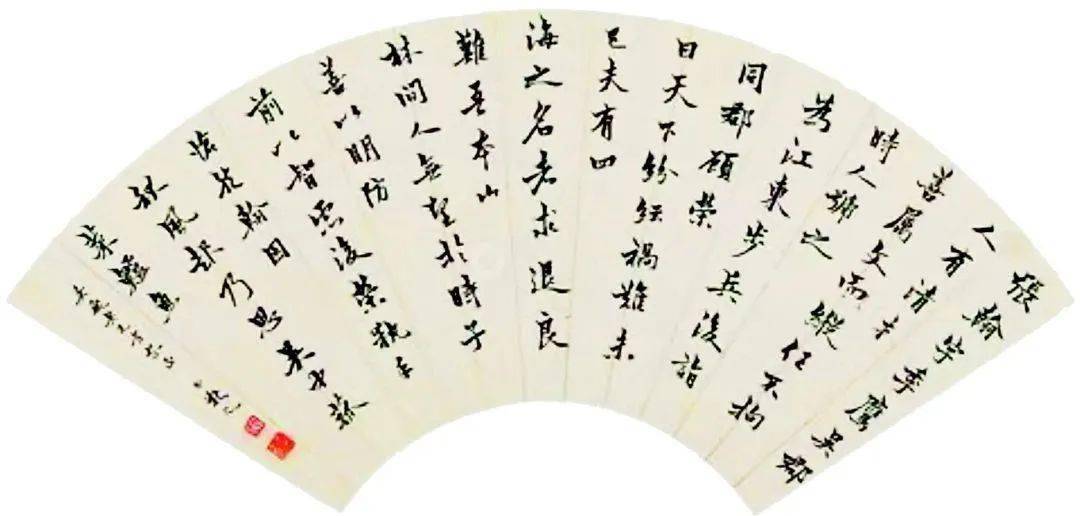 張翰字季鷹吳郡
人有清才
善屬文而縱任不拘
時人號之
為江東步兵後詣
同郡顧榮
曰天下紛紜禍難未
已夫有四
海之名者求退良
難吾本山
林間人無望於時子
善以明防
前以智慮後榮執其
愴然翰因
秋風起乃思吳中菰
菜鱸魚